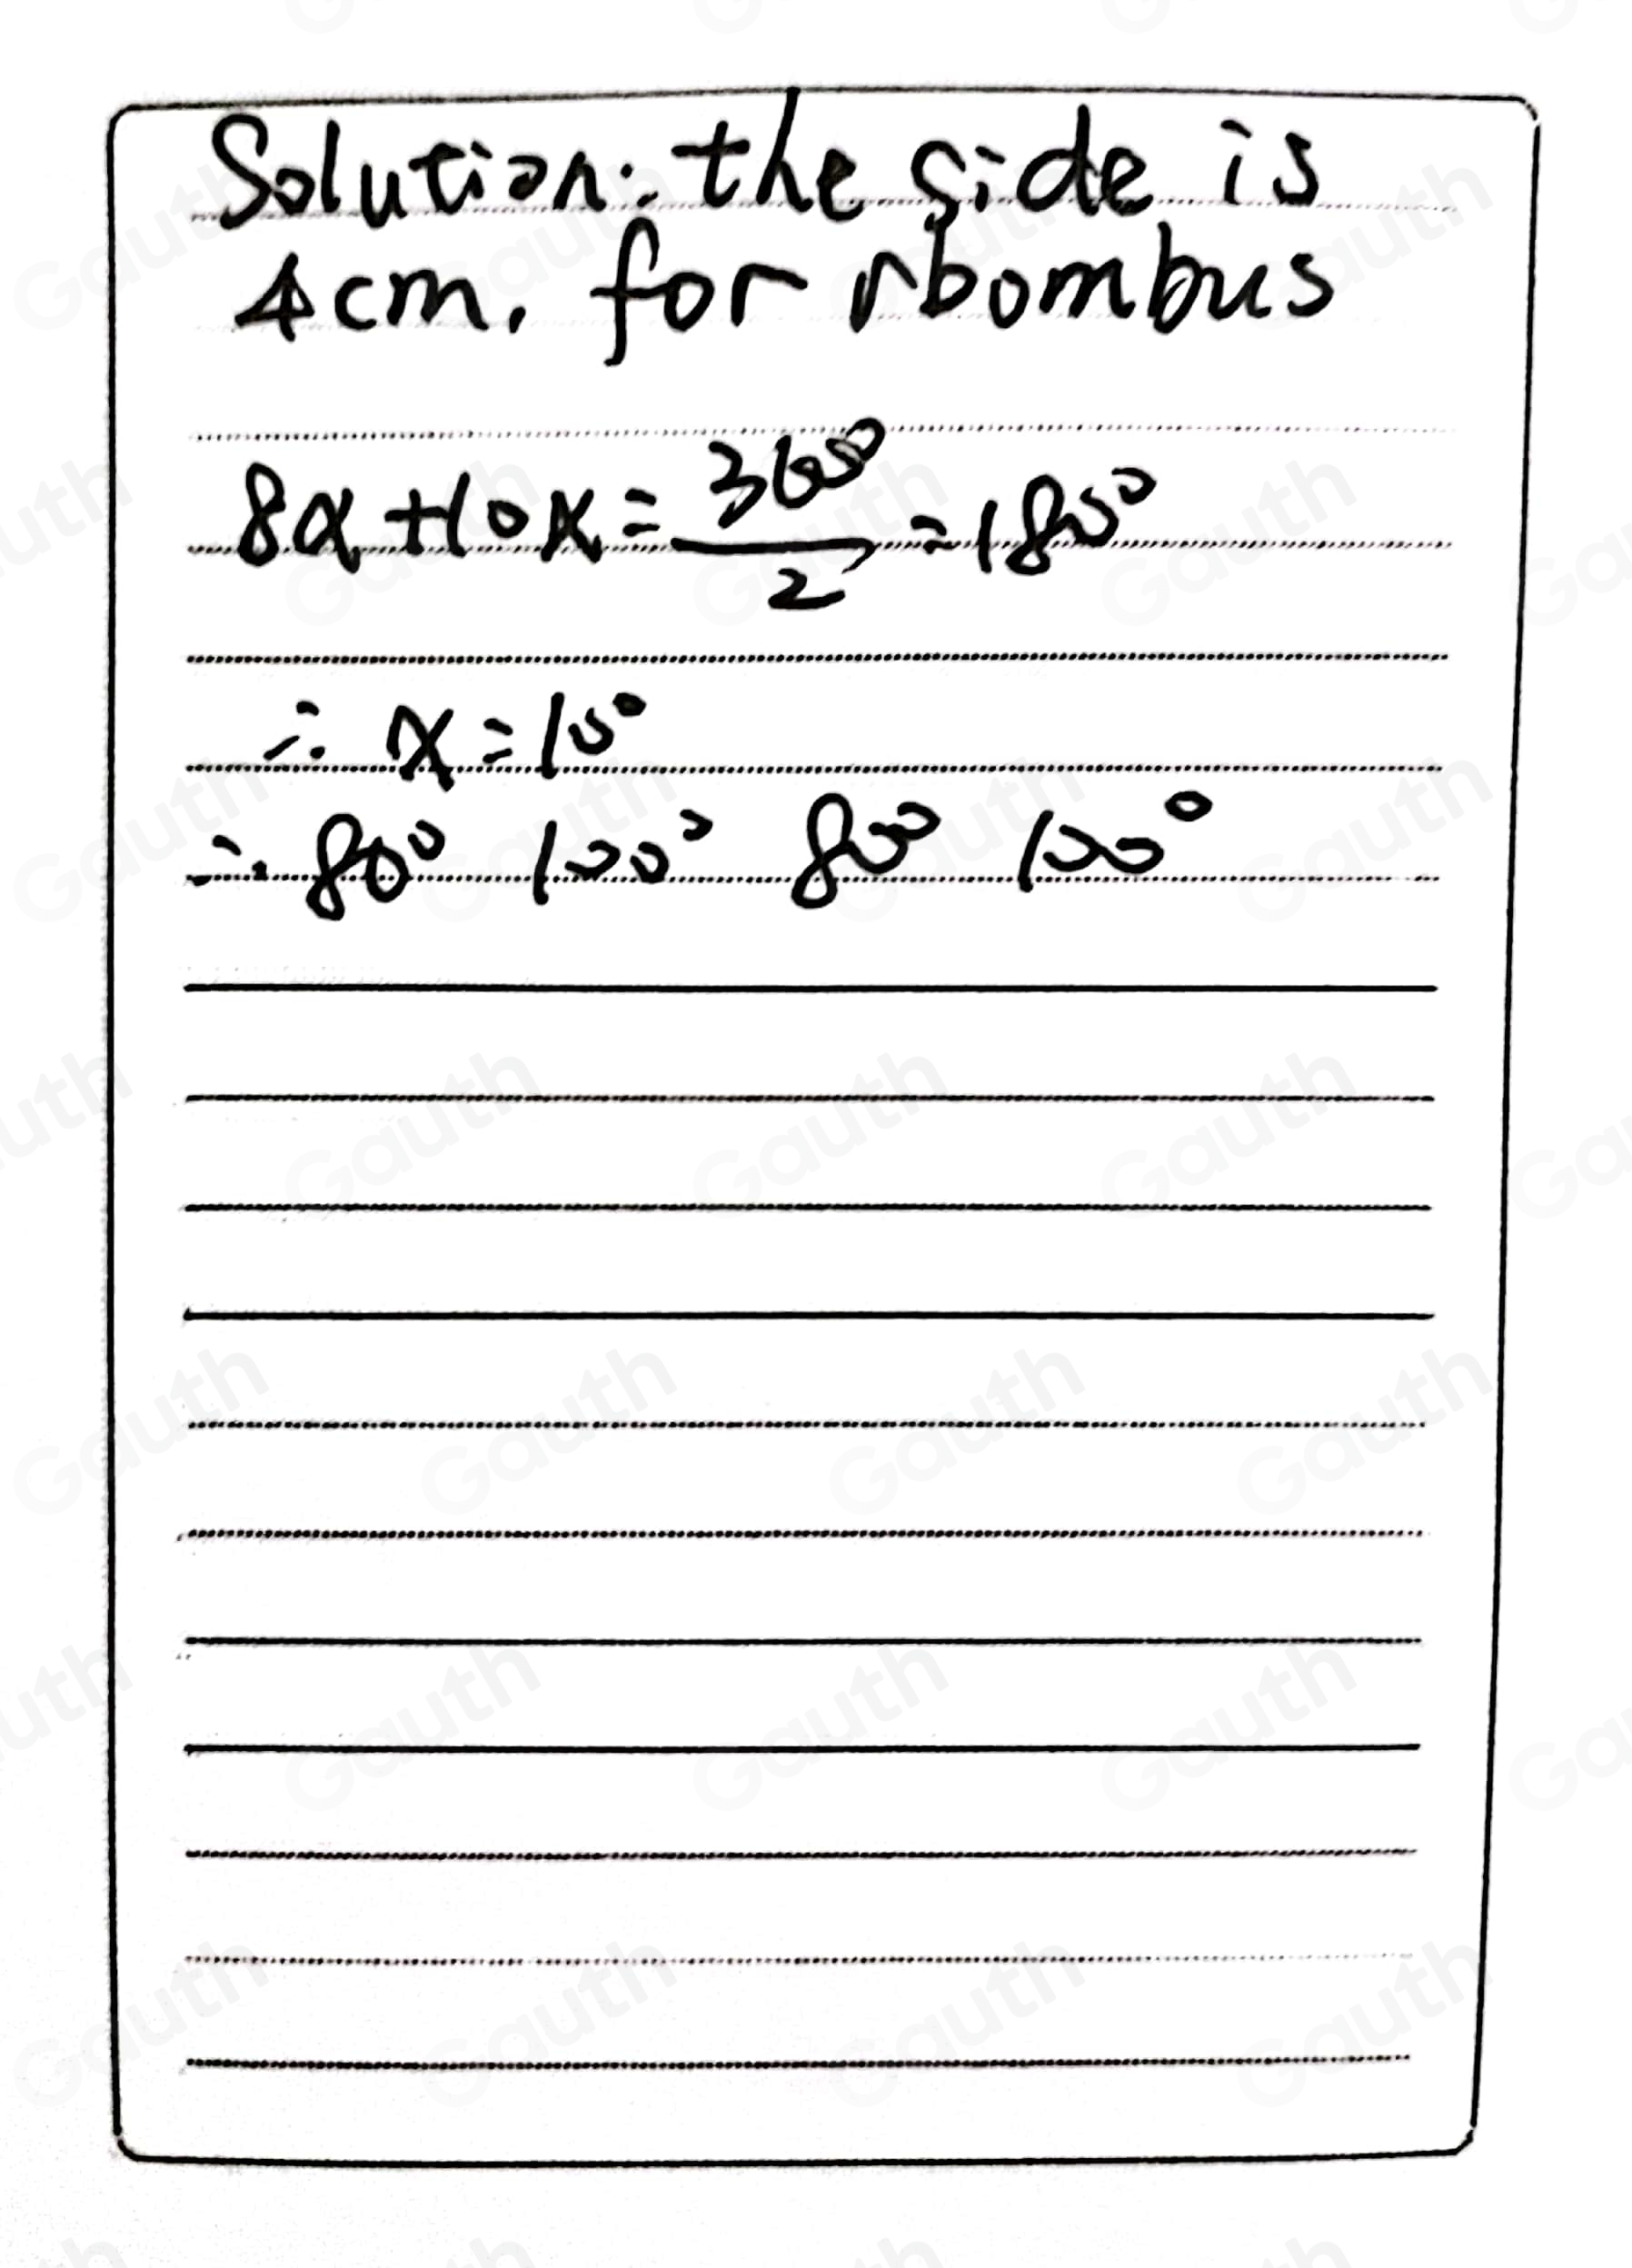 Solution: the side is
4cm. for rhombus
8x+10x=360°/2=180°
∴ x=10°
∴ 80° 100° 80° 100°